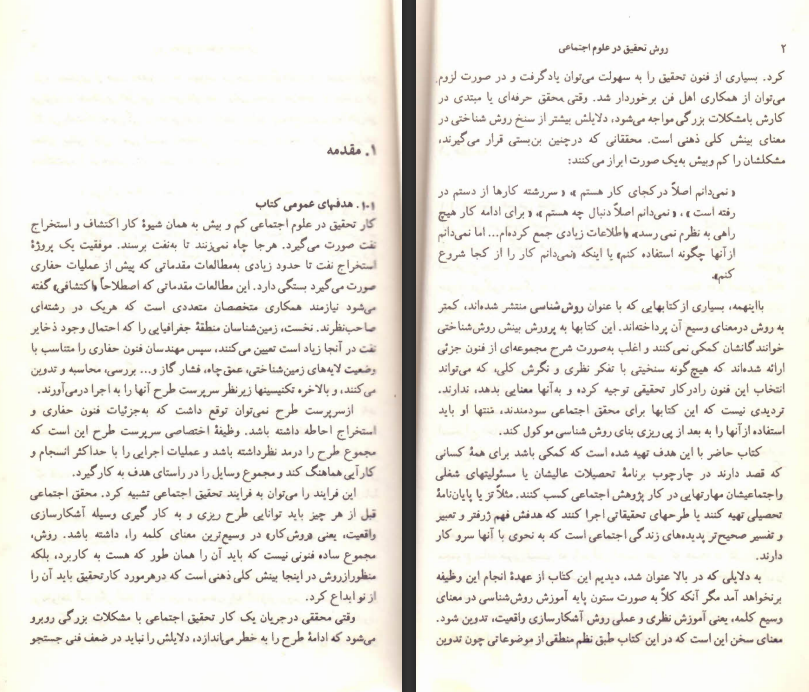 ۱. مقدمه
۱-۱. هدفهای عمومی کتاب
کار تحقیق در علوم اجتماعی کم و بیش به همان شیوهٔ کار اکتشاف و استخراج
نفت صورت می‌گیرد. هرجا چاه نمی‌زنند تا به‌نفت برسند. موفقیت یک پروژهٔ
استخراج نفت تا حدود زیادی به‌مطالعات مقدماتی که پیش از عملیات حفاری
صورت می‌گیرد بستگی دارد. این مطالعات مقدماتی که اصطلاحاً «اکتشافی» گفته
می‌شود نیازمند همکاری متخصصان متعددی است که هریک در رشته‌ای
صاحب‌نظرند. نخست، زمین‌شناسان منطقهٔ جغرافیایی را که احتمال وجود ذخایر
نفت در آنجا زیاد است تعیین می‌کنند، سپس مهندسان فنون حفاری را متناسب با
وضعیت لایه‌های زمین‌شناختی، عمق‌چاه، فشار گاز و... بررسی، محاسبه و تدوین
می‌کنند، و بالاخره تکنیسینها زیرنظر سرپرست طرح آنها را به اجرا درمی‌آورند.
ازسرپرست طرح نمی‌توان توقع داشت که به‌جزئیات فنون حفاری و
استخراج احاطه داشته باشد. وظیفهٔ اختصاصی سرپرست طرح این است که
مجموع طرح را درمد نظرداشته باشد و عملیات اجرایی را با حداکثر انسجام و
کارآیی هماهنگ کند و مجموع وسایل را در راستای هدف به کارگیرد.
این فرایند را می‌توان به فرایند تحقیق اجتماعی تشبیه کرد. محقق اجتماعی
قبل از هر چیز باید توانایی طرح ریزی و به کار گیری وسیله آشکارسازی
واقعیت، یعنی «روش‌کار» در وسیع‌ترین معنای کلمه را، داشته باشد. روش،
مجموع ساده فنونی نیست که باید آن را همان طور که هست به کاربرد، بلکه
منظورازروش در اینجا بینش کلی ذهنی است که درهرمورد کارتحقیق باید آن را
از نو ابداع کرد.
وقتی محققی درجریان یک کار تحقیق اجتماعی با مشکلات بزرگی روبرو
می‌شود که ادامهٔ طرح را به خطر می‌اندازد، دلایلش را نباید در ضعف فنی جستجو
۲
روش تحقیق در علوم اجتماعی
کرد. بسیاری از فنون تحقیق را به سهولت می‌توان یادگرفت و در صورت لزوم
می‌توان از همکاری اهل فن برخوردار شد. وقتی محقق حرفه‌ای یا مبتدی در
کارش بامشکلات بزرگی مواجه می‌شود، دلایلش بیشتر از سنخ روش شناختی در
معنای بینش کلی ذهنی است. محققانی که درچنین بن‌بستی قرار می‌گیرند،
مشکلشان را کم وبیش به‌یک صورت ابراز می‌کنند:
« نمی‌دانم اصلاً درکجای کار هستم »، « سررشته کارها از دستم در
رفته است » ، « نمی‌دانم اصلاً دنبال چه هستم »، « برای ادامه کار هیچ
راهی به نظرم نمی رسد»، «اطلاعات زیادی جمع کرده‌ام... اما نمی‌دانم
از آنها چگونه استفاده کنم» یا اینکه «نمی‌دانم کار را از کجا شروع
کنم».
بااینهمه، بسیاری ازکتابهایی که با عنوان روش‌شناسی منتشر شده‌اند، کمتر
به روش درمعنای وسیع آن پرداخته‌اند. این کتابها به پرورش بینش روش‌شناختی
خوانندگانشان کمکی نمی‌کنند و اغلب به‌صورت شرح مجموعه‌ای از فنون جزئی
ارائه شده‌اند که هیچ‌گونه سنخیتی با تفکر نظری و نگرش کلی، که می‌تواند
انتخاب این فنون رادرکار تحقیقی توجیه کرده و به‌آنها معنایی بدهد، ندارند.
تردیدی نیست که این کتابها برای محقق اجتماعی سودمندند، منتها او باید
استفاده ازآنها را به بعد از پی ریزی بنای روش شناسی موکول کند.
کتاب حاضر با این هدف تهیه شده است که کمکی باشد برای همهٔ کسانی
که قصد دارند در چارچوب برنامهٔ تحصیلات عالیشان یا مسئولیتهای شغلی
واجتماعیشان مهارتهایی در کار پژوهش اجتماعی کسب کنند. مثلاً تز یا پایان‌نامهٔ
تحصیلی تهیه کنند یا طرحهای تحقیقاتی اجرا کنند که هدفش فهم ژرفتر و تعبیر
و تفسیر صحیح‌تر پدیده‌های زندگی اجتماعی است که به نحوی با آنها سرو کار
دارند.
به دلایلی که در بالا عنوان شد، دیدیم این کتاب از عهدهٔ انجام این وظیفه
برنخواهد آمد مگر آنکه کلاً به صورت ستون پایه آموزش روش‌شناسی در معنای
وسیع کلمه، یعنی آموزش نظری و عملی روش آشکارسازی واقعیت، تدوین شود.
معنای سخن این است که در این کتاب طبق نظم منطقی از موضوعاتی چون تدوین